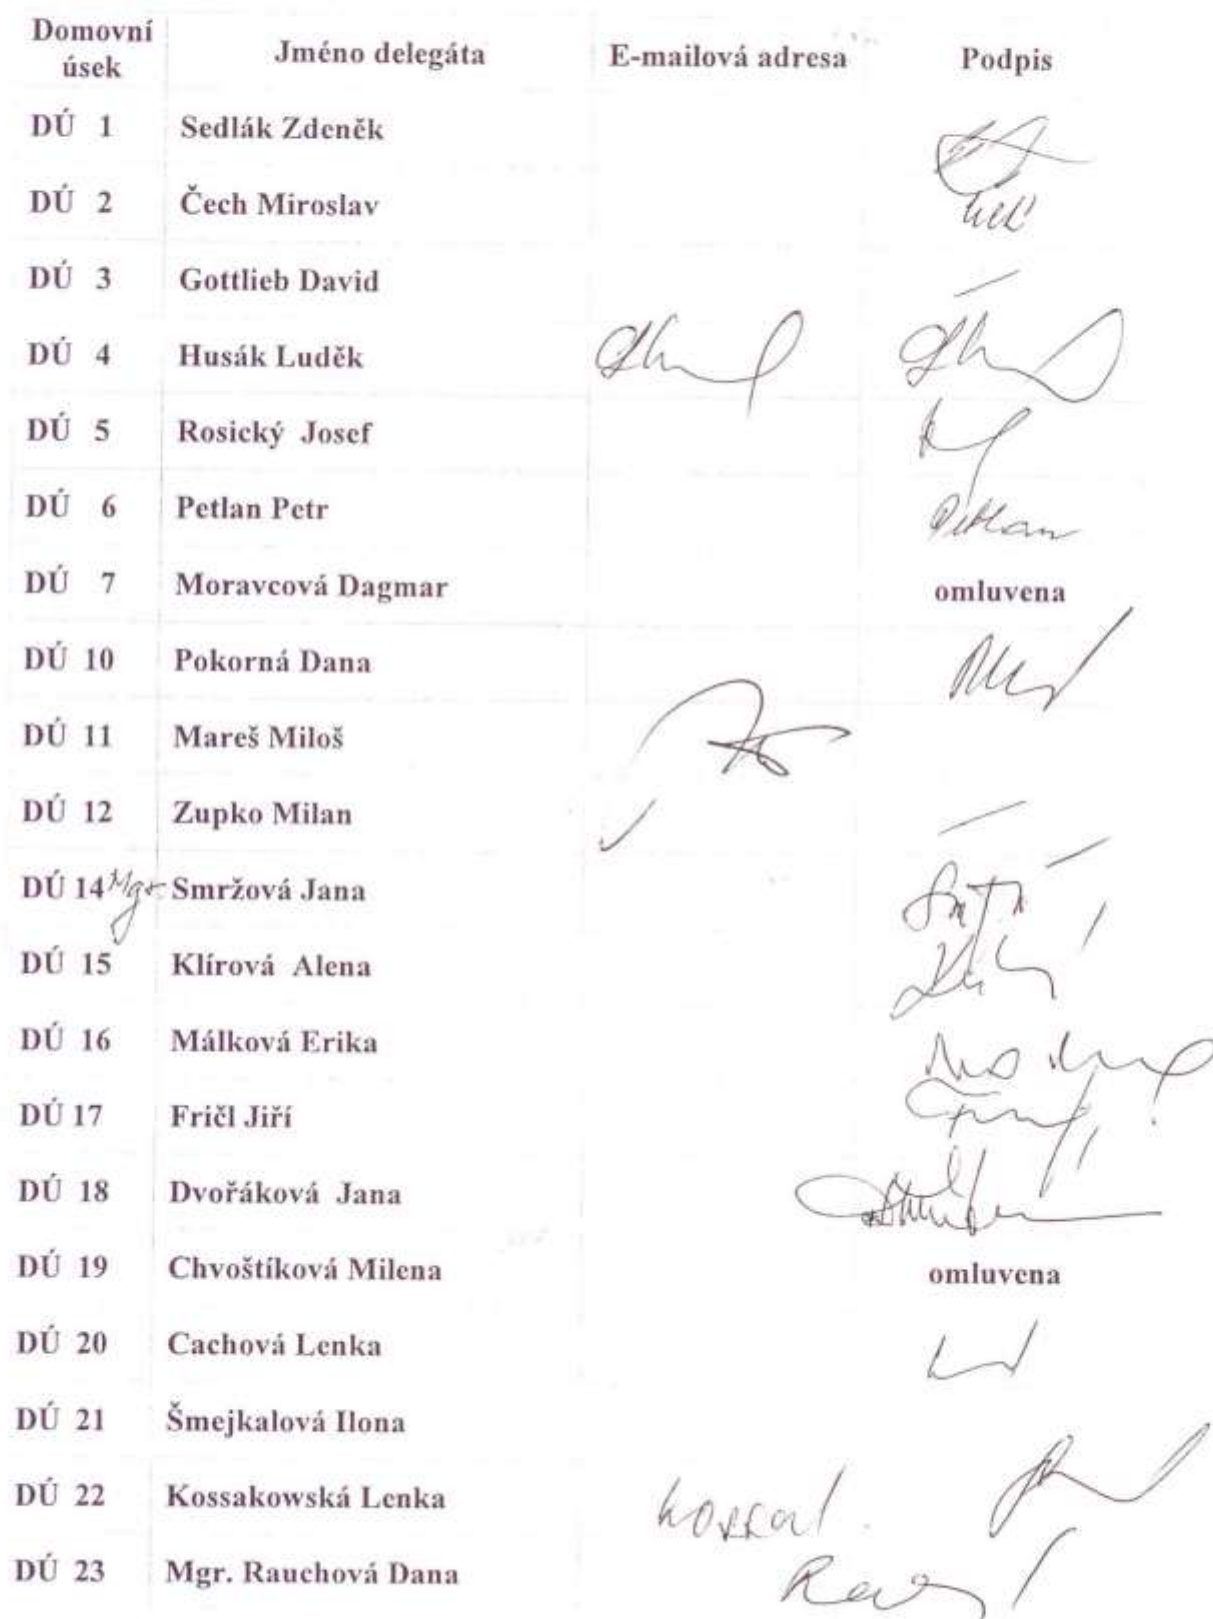 Domovní úsek Jméno delegáta E-mailová adresa Podpis
DÚ 1 Sedlák Zdeněk
DÚ 2 Čech Miroslav
DÚ 3 Gottlieb David
DÚ 4 Husák Luděk
DÚ 5 Rosický Josef
DÚ 6 Petlan Petr Petlan
DÚ 7 Moravcová Dagmar omluvena
DÚ 10 Pokorná Dana
DÚ 11 Mareš Miloš
DÚ 12 Zupko Milan
DÚ 14 Mgr. Smržová Jana
DÚ 15 Klírová Alena
DÚ 16 Málková Erika
DÚ 17 Fričl Jiří
DÚ 18 Dvořáková Jana
DÚ 19 Chvoštíková Milena omluvena
DÚ 20 Cachová Lenka
DÚ 21 Šmejkalová Ilona
DÚ 22 Kossakowská Lenka
DÚ 23 Mgr. Rauchová Dana